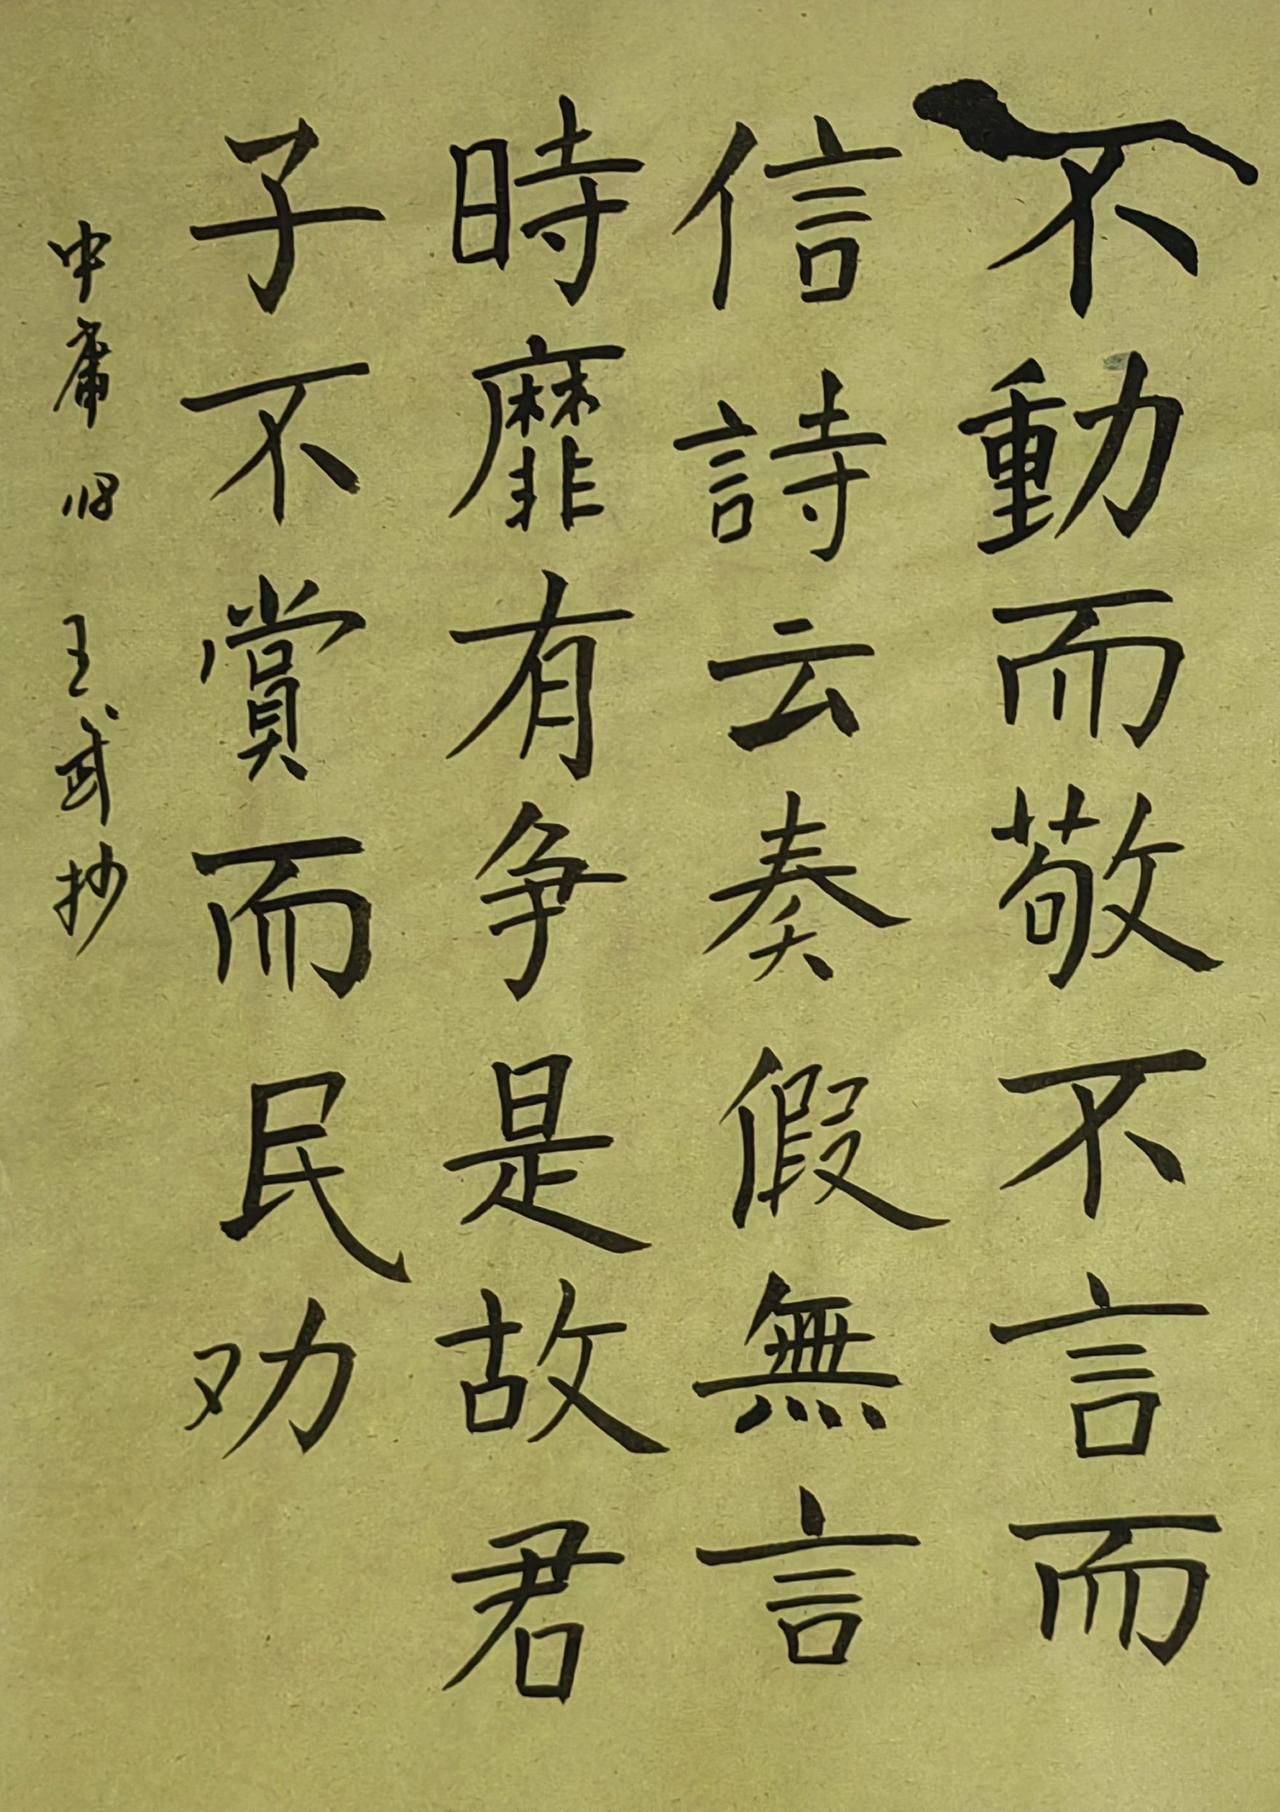 不動而敬不言而
信詩云奏假無言
時靡有争是故君
子不賞而民劝
中庸 118 王武抄